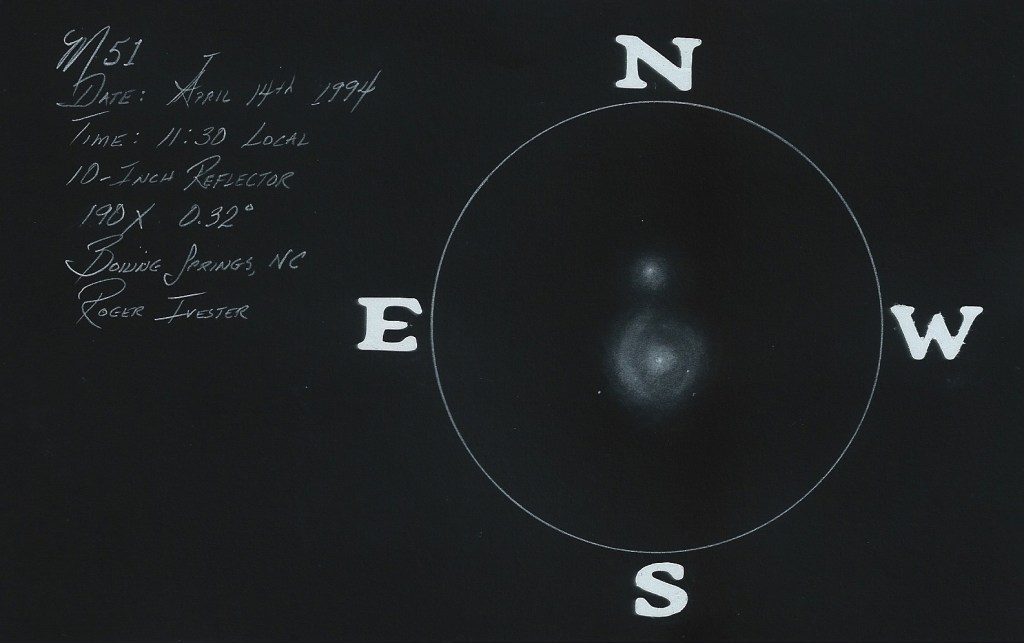 M51
DATE: APRIL 14th 1994
TIME: 11:30 LOCAL
10-INCH REFLECTOR
190X 0.32°
BOILING SPRINGS, NC
ROGER IVESTER
N
E
W
S